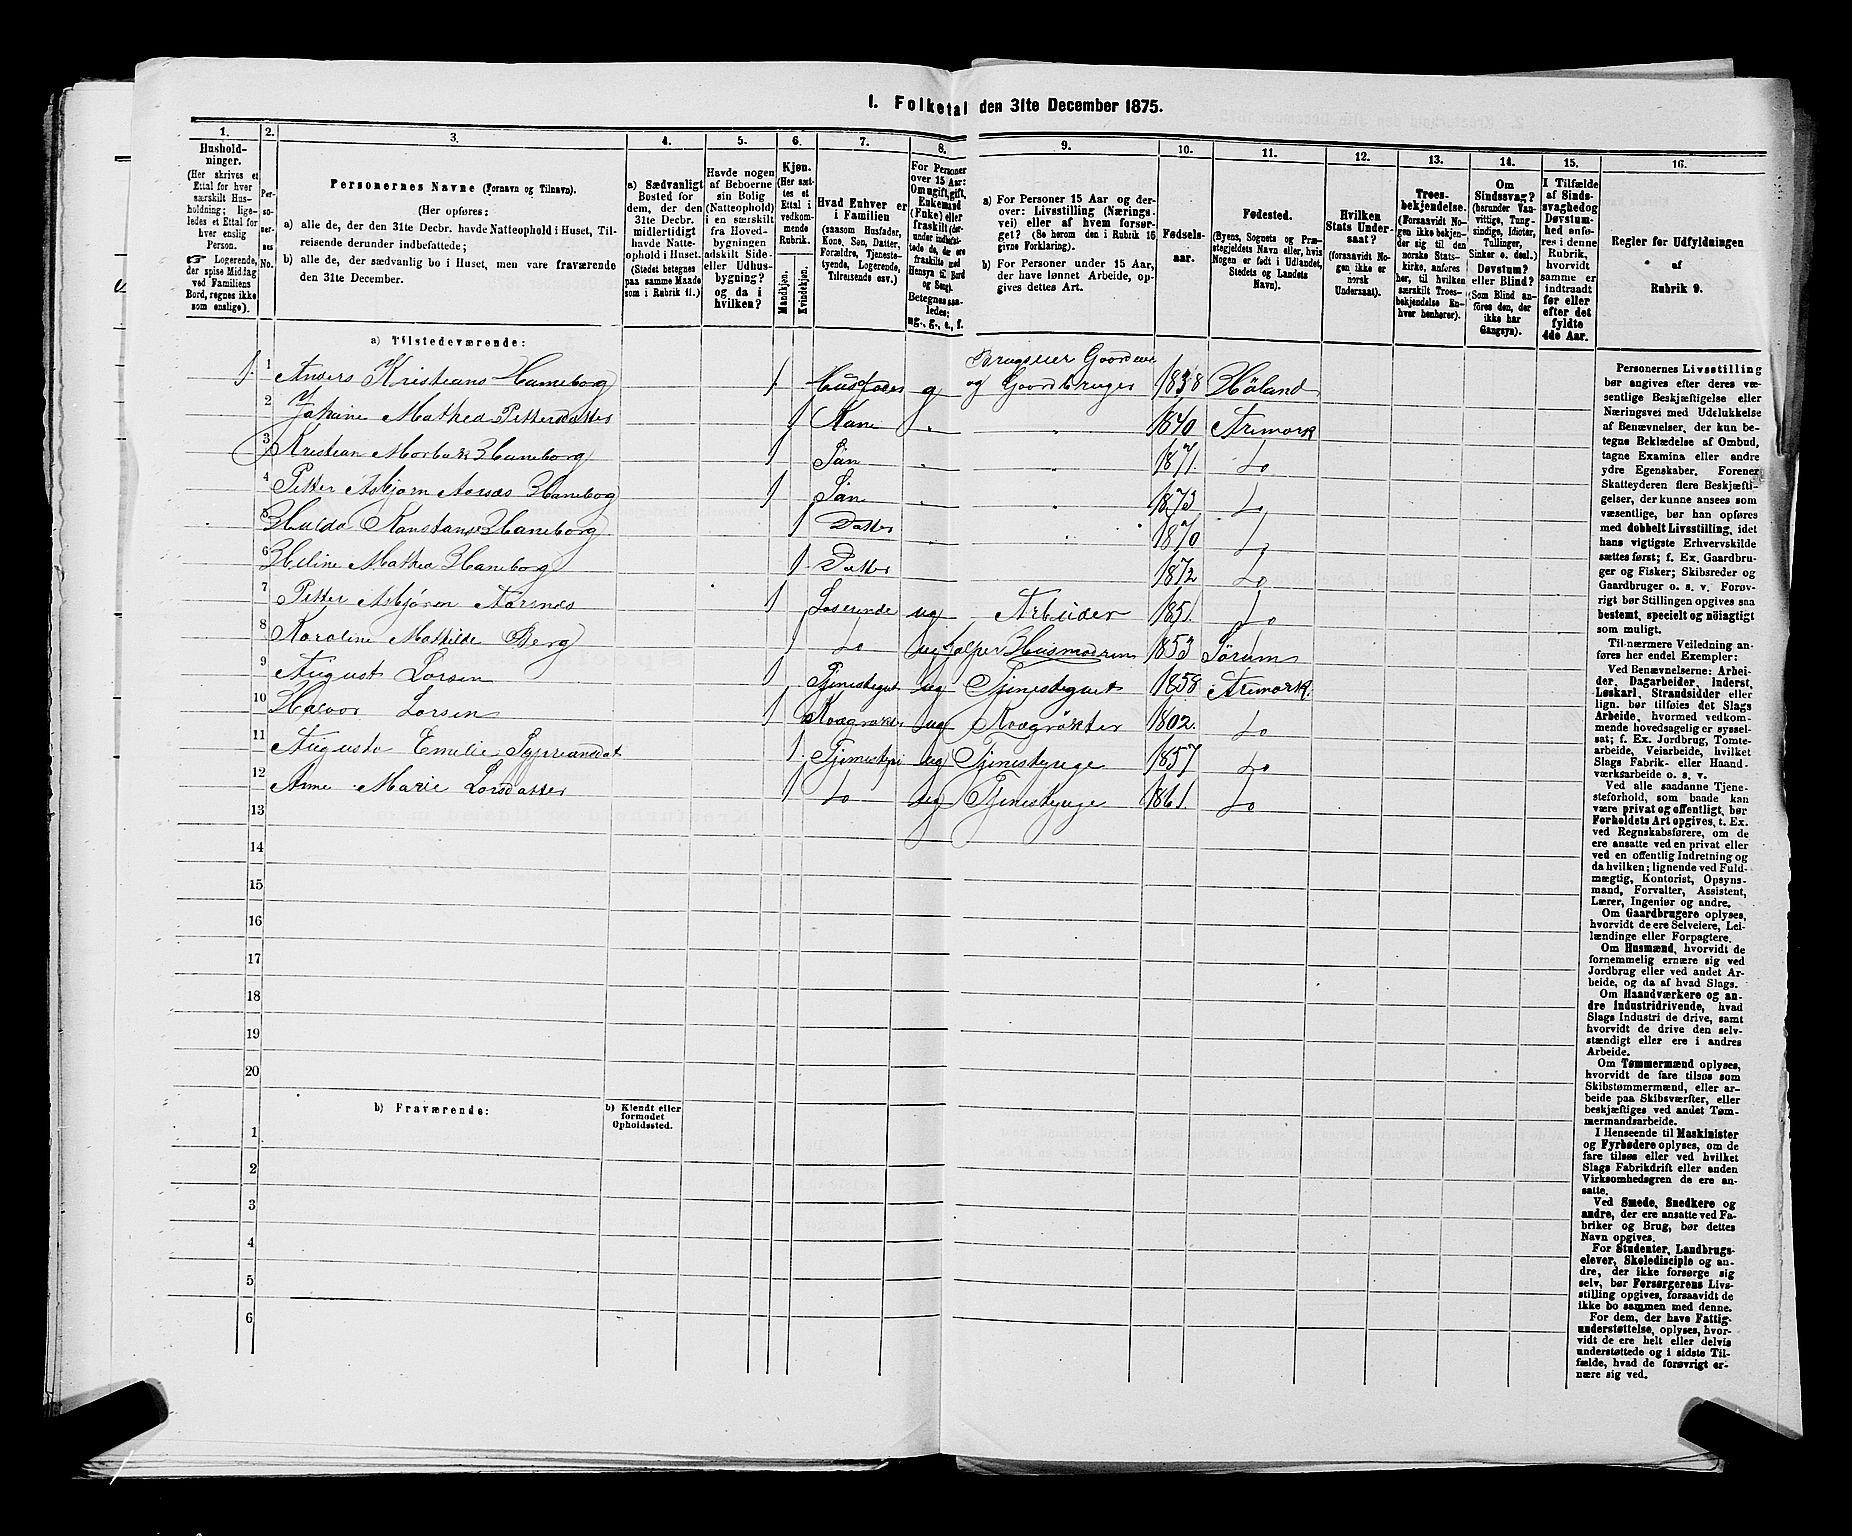 I. Folketal den 31te December 1875.
1. 2. 3. 4. 5. 6. 7. 8. 9. 10. 11. 12. 13. 14. 15. 16.
Husholdninger. (Her skrives et Ettal for hver særskilt Husholdning; ligeledes et Ettal for hver enslig Person. ☞ Logerende, der spise Middag ved Familiens Bord, regnes ikke som enslige).
Personernes No.
Personernes Navne (Fornavn og Tilnavn).
(Her opføres:
a) alle de, der den 31te Decbr. havde Natteophold i Huset, Tilreisende derunder indbefattede;
b) alle de, der sædvanlig bo i Huset, men vare fraværende den 31te December.
a) Sædvanligt Bosted for dem, der den 31te Decbr. midlertidigt havde Natteophold i Huset. (Stedet betegnes paa samme Maade som i Rubrik 11.)
Havde nogen af Beboerne sin Bolig (Natteophold) i en særskilt fra Hovedbygningen adskilt Side- eller Udhusbygning? og da i hvilken?
Kjøn. (Her sættes et Ettal i vedkommende Rubrik.
Mandkjøn. Kvindekjøn.
Hvad Enhver er i Familien (saasom Husfader, Kone, Søn, Datter, Forældre, Tjenestetyende, Logerende, Tilreisende osv.
For Personer over 15 Aar: Om ugift, gift, Enkemand (Enke) eller fraskilt (derunder indbefattede de, der ere fraskilte med Hensyn til Bord og Seng). Betegnes saaledes: ug., g., e., f.
a) For Personer 15 Aar og derover: Livsstilling (Næringsvei) eller af hvem forsørget? (Se herom den i Rubrik 16 givne Forklaring).
b) For Personer under 15 Aar, der have lønnet Arbeide, opgives dettes Art.
Fødselsaar.
Fødested. (Byens, Sognets og Præstegjeldets Navn eller, hvis Nogen er født i Udlandet, Stedets og Landets Navn).
Hvilken Stats Undersaat? (forsaavidt Nogen ikke er norsk Undersaat).
Troesbekjendelse. (Forsaavidt Nogen ikke bekjender sig til den norske Statskirke, anføres her, til hvilken særskilt Troesbekjendelse Enhver henhører).
Om Sindssvag? (herunder Vanvittige, Tungsindige, Idioter, Tullinger, Sinker o. desl.). Døvstum? eller Blind? (Som Blind anføres den, der ikke har Gangsyn).
I Tilfælde af Sindssvaghed og Døvstumhed anføres i denne Rubrik, hvorvidt samme er indtraadt før eller efter det fyldte 4de Aar.
Regler for Udfyldningen af Rubrik 9.
a) Tilstedeværende:
1. 1 Anders Kristians Haneborg 1. Husfader g Brugseier Gaardeier og Gaardbruger 1838 Høland
2 Johine Mathea Pettersdatter 1 Kone 1840 Aremark
3 Kristian Haneborg 1 Søn 1871. Do
4 Petter Asbjørn Aarnæs Haneborg 1 Søn 1873 Do
5 Hulda Konstanse Haneborg 1 Datter 1870 Do
6 Heline Mathea Haneborg 1 Datter 1872 Do
7 Petter Asbjøren Aarnæs 1 Loserende ug Arbeider 1851. Do
8 Karoline Mathilde Berg 1 Do ug hjælper Husmodren 1853 Sørum
9 August Larsen 1 Tjenestegut ug Tjenestegut 1858 Aremark.
10 Halvor Larsen 1 Kreaturrøgter ug Røgter 1802. Do
11 Augusta Emilie 1. Tjenestepi ug Tjenestepige 1857 Do
12 Anne Marie Larsdatter 1 Do ug Tjenestepige 1861 Do
13
14
15
16
17
18
19
20
b) Fraværende: b) Kjendt eller formodet Opholdssted.
1
2
3
4
5
6
Personernes Livsstilling
bør angives efter deres væ-
sentlige Beskjæftigelse eller
Næringsvei med Udelukkelse
af Benævnelser, der kun be-
tegne Beklædelse af Ombud,
tagne Examina eller andre
ydre Egenskaber. Forener
Skatteyderen flere Beskjæfti-
gelser, der kunne ansees som
væsentlige, bør han opføres
med dobbelt Livsstilling, idet
hans vigtigste Erhvervskilde
sættes først; f. Ex. Gaardbru-
ger og Fisker; Skibsreder og
Gaardbruger o. s. v. Forøv-
rigt bør Stillingen opgives saa
bestemt, specielt og nöiagtigt
som muligt.
Til nærmere Veiledning an-
føres her endel Exempler:
Ved Benævnelserne: Arbei-
der, Dagarbeider, Inderst,
Løskarl, Strandsidder eller
lign. bør tilføies det Slags
Arbeide, hvormed vedkom-
mende hovedsagelig er syssel-
sat; f. Ex. Jordbrug, Tomte-
arbeide, Veiarbeide, hvilket
Slags Fabrik- eller Haand-
værksarbeide o. s. v.
Ved alle saadanne Tjene-
steforhold, som baade kan
være privat og offentligt, bør
Forholdets Art opgives, t. Ex.
ved Regnskabsførere, om de
ere ansatte ved en privat eller
ved en offentlig Indretning og
da hvilken; lignende ved Fuld-
mægtig, Kontorist, Opsyns-
mand, Forvalter, Assistent,
Lærer, Ingeniør og andre.
Om Gaardbrugere oplyses,
hvorvidt de ere Selveiere, Lei-
lændinge eller Forpagtere.
Om Husmænd, hvorvidt de
fornemmelig ernære sig ved
Jordbrug eller ved andet Ar-
beide, og da af hvad Slags.
Om Haandværkere og an-
dre Industridrivende, hvad
Slags Industri de drive, samt
hvorvidt de drive den selv-
stændigt eller ere i andres
Arbeide.
Om Tømmermænd oplyses,
hvorvidt de fare tilsøs som
Skibstømmermænd, eller ar-
beide paa Skibsværfter, eller
beskjæftiges ved andet Tøm-
mermandsarbeide.
I Henseende til Maskinister
og Fyrbødere oplyses, om de
fare tilsøs eller ved hvilket
Slags Fabrikdrift eller anden
Virksomhedsgren de ere an-
satte.
Ved Smede, Snedkere og
andre, der ere ansatte ved Fa-
briker og Brug, bør dettes
Navn opgives.
For Studenter, Landbrugs-
elever, Skoledisciple og an-
dre, der ikke forsørge sig
selv, bør Forsørgerens Livs-
stilling opgives, forsaavidt de
ikke bo sammen med denne.
For dem, der have Fattig-
understøttelse, oplyses, hvor-
vidt de ere helt eller delvis
understøttede og i sidste Til-
fælde, hvad de forøvrigt er-
nære sig ved.